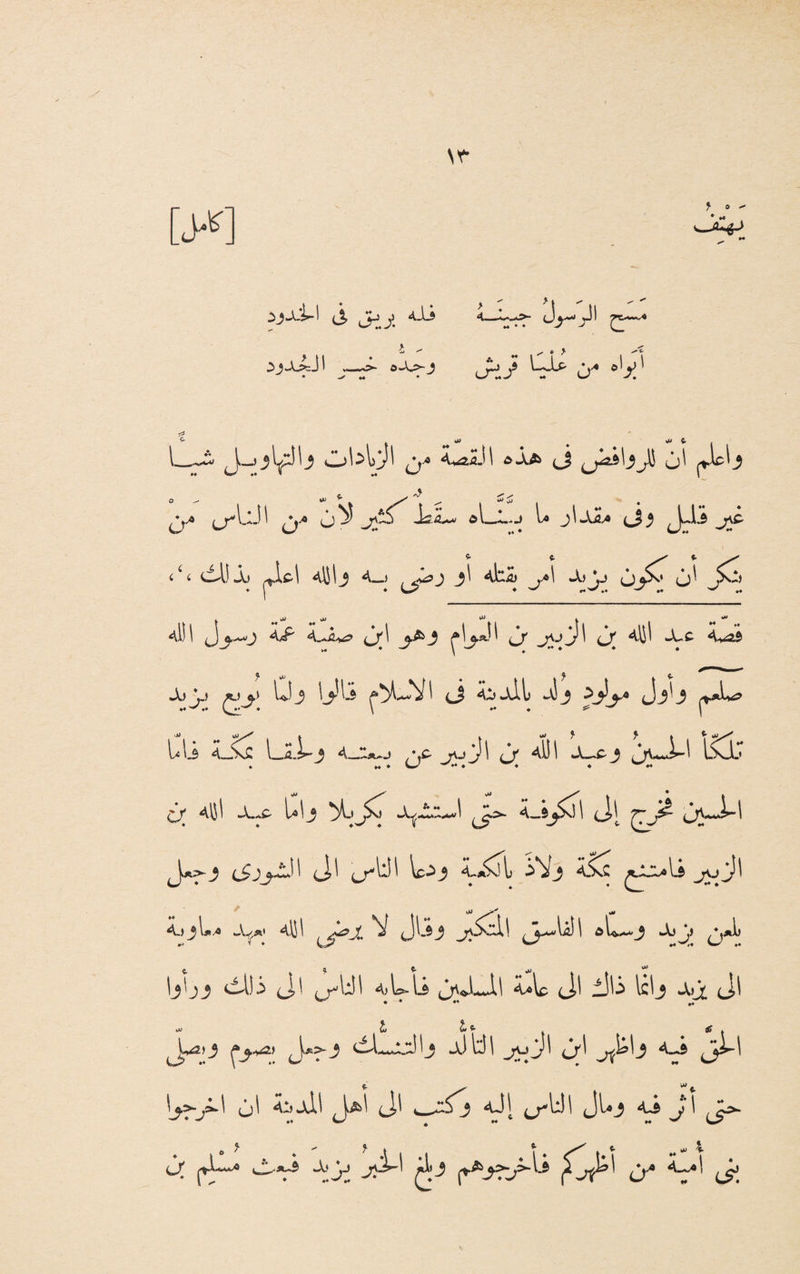 ١٣
يَهْتِفُ [كامل]
مَسَحَ الرَسولُ جبينَهُ فله بريق في الخدود
أبواه من عُلْيَا قريش وجَدُّه خير الجُدود
واعلم أنّ للروافض في هذه القصّة من الزيادات والتهاويل شيئًا
غير قليل وفي مقدار ما بيّنّاه سقط كثيرٌ لأنّ من الناس مَنْ
ينكر أن يكون يزيد أمر بقتله أو رضي به والله أعلم بذلك ،،
قصّة عبد الله بن الزبير بن العوّام وهو ابن صفيّة عمّة رسول الله
صلعم وأوّل مولود ولد بالمدينة في الإسلام قالوا ولمّا بويع يزيد
تلكّأ الحسين وعبد الله بن الزبير عن بيعته ولحقا بمكّة فامّا
الحسين فخرج إلى الكوفة حتّى استشهد بكربلا وامّا عبد الله بن
الزبير فامتنع بمكّة ولاذ بالكعبة ودعا الناس إلى الشورى وجعل
يلعن يزيد وسمّاه الفاسق المتكبّر وقال لا يرضى الله بعهد معاوية
إلى يزيد وانّما ذاك إلى عامّة المسلمين فأجابه الناس إلى ذلك ورأوا
الحقّ فيه واظهر ابن الزبير التألّه والتنسّك وجعل يصوم ويصلّي
حتّى أثّر فيه ومال الناس إليه وكتب إلى أهل المدينة أن اخرجوا
بني أميّة من أظهركم فاخرجوهم وبلغ الخبر يزيد فبعث مُسْلم بن